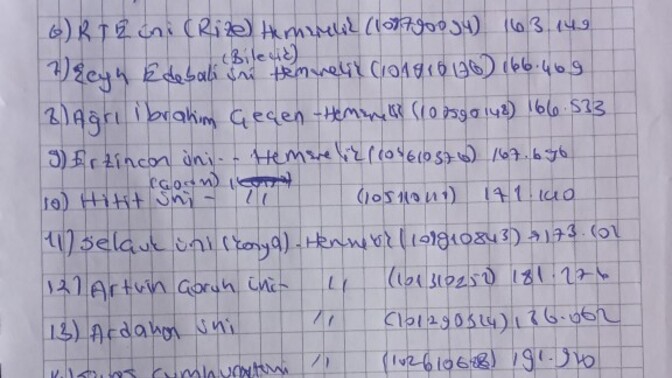 6) RTE üni (Rize) Hemşirelik (109790094) 163.149
(Bilecik)
7) Şeyh Edebali üni Hemşirelik (101910196) 166.469
8) Ağrı ibrahim Çeçen - Hemşirelik (102590148) 166.533
9) Erzincan üni - Hemşirelik (103610376) 167.696
(Çorum)
10) Hitit üni - " (10511011) 171.140
11) Selçuk üni (Konya) - Hemşirelik (108910843) → 173.602
12) Artvin Çoruh üni - " (101310252) 181.276
13) Ardahan üni " (101290524), 136.062
Cumhuriyet üni " (102610688) 191.940